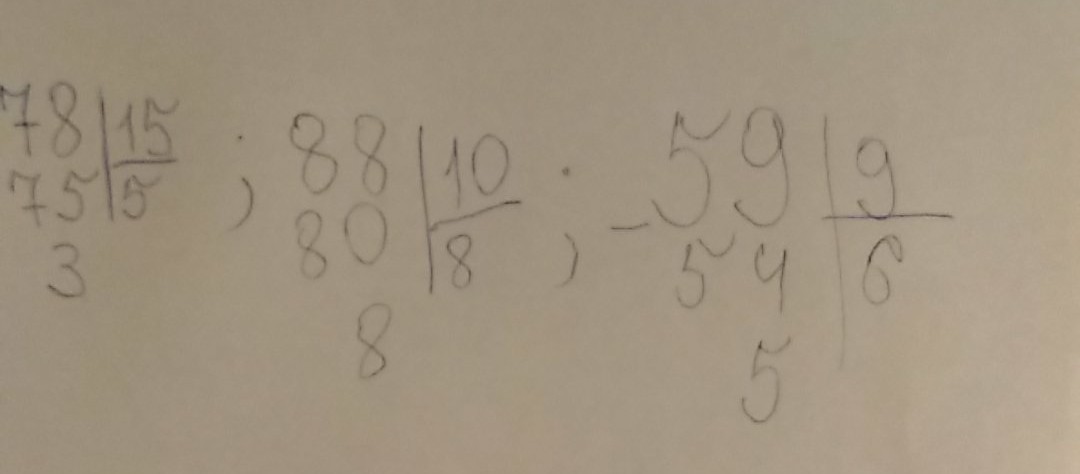 78 15 ; 88 10 ; - 59 9
75 5 80 8 54 6
3 8 5